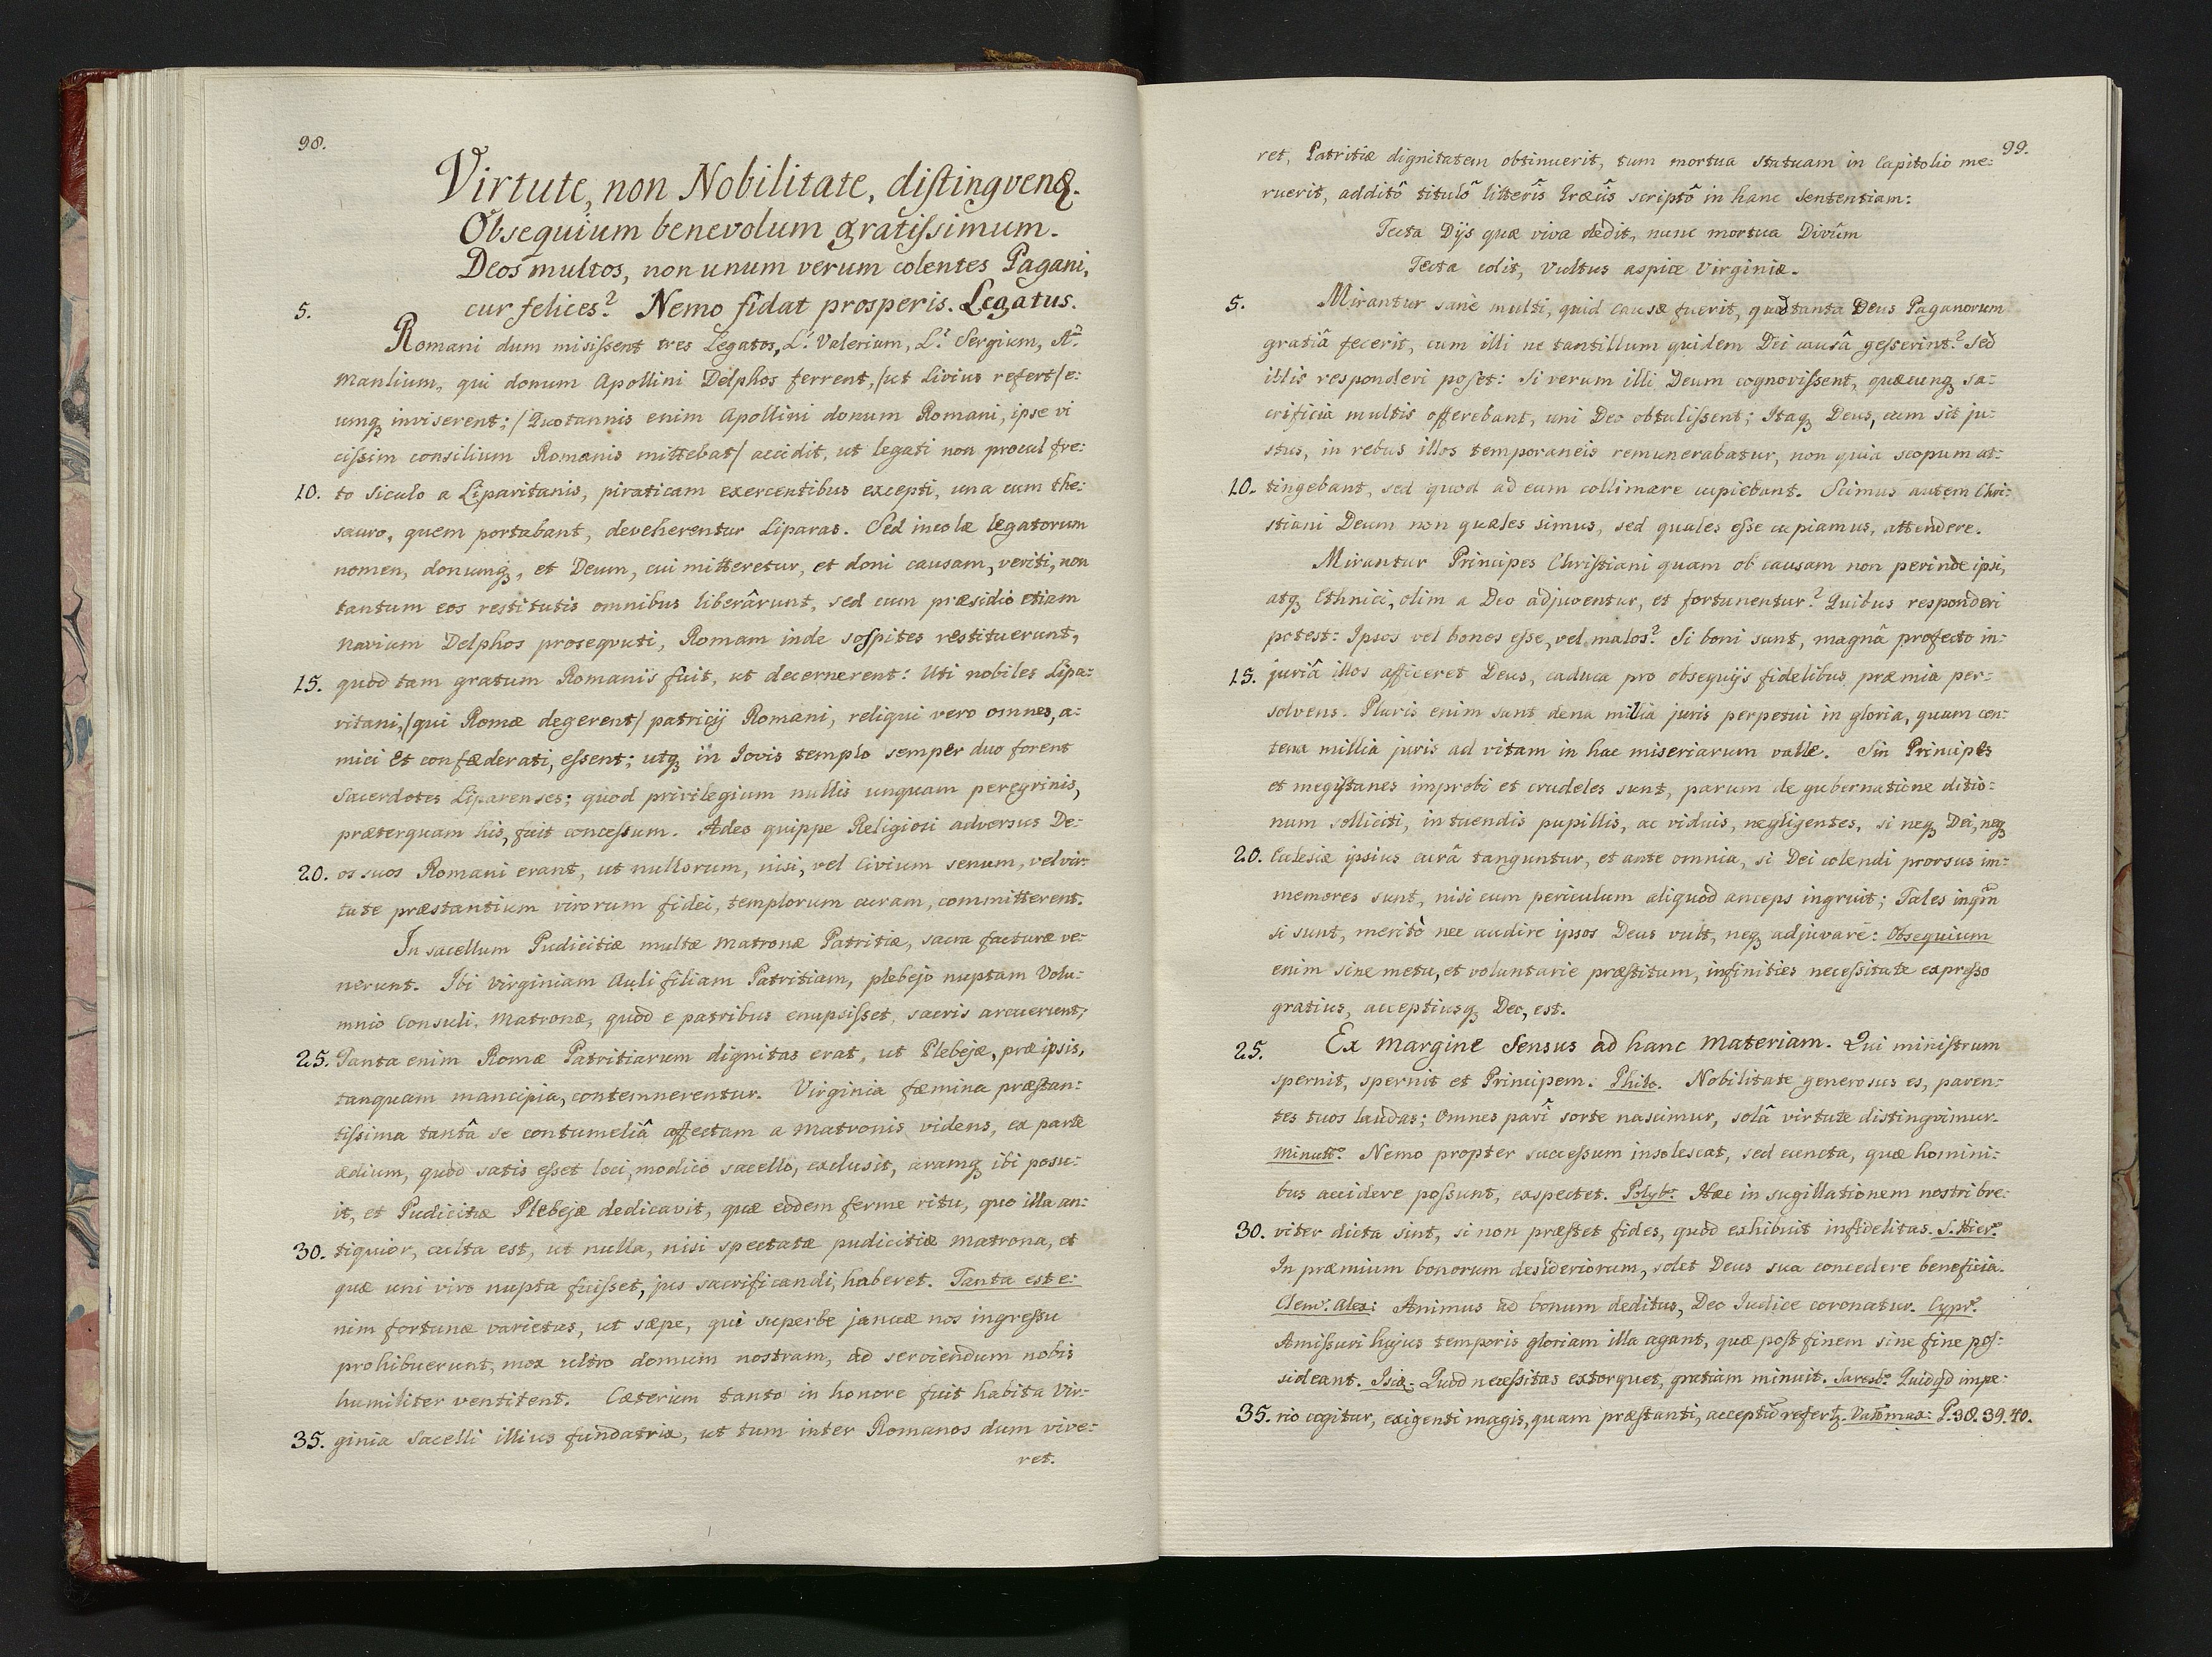 98.
Virtute, non Nobilitate, distingvenꝫ.
Obsequium benevolum gratissimum.
Deos multos, non unum verum colentes Pagani,
5. cur felices? Nemo fidat prosperis. Legatus.
Romani dum misissent tres Legatos, L. Valerium, L. Sergium, A.
Manlium, qui donum Apollini Delphos ferrent, /ut Livius refert/ e:
umqꝫ inviserent; /Quotannis enim Apollini donum Romani, ipse vi
cissim consilium Romanis mittebat/ accidit, ut legati non procul fre:
10. to Siculo a Liparitanis, piraticam exercentibus excepti, una cum the:
sauro, quem portabant, deveherentur Liparas. Sed incolæ legatorum
nomen, donumqꝫ, et Deum, cui mitteretur, et doni causam, veriti, non
tantum eos restitutis omnibus liberârunt, sed cum præsidio etiam
navium Delphos proseqvuti, Romam inde sospites restituerunt,
15. quod tam gratum Romanis fuit, ut decernerent: Uti nobiles Lipa:
ritani, /qui Romæ degerent/ patricij Romani, reliqui vero omnes, a:
mici et confæderati, essent; utqꝫ in Jovis templo semper duo forent
Sacerdotes Liparenses; quod privilegium nullis unquam peregrinis,
præterquam his, fuit concessum. Adeo quippe Religiosi adversus De:
20. os suos Romani erant, ut nullorum, nisi, vel Civium senum, vel vir:
tute præstantium virorum fidei, templorum curam, committerent.
In sacellum Pudicitiæ multæ Matronæ Patritiæ, sacra facturæ ve:
nerunt. Ibi Virginiam Auli filiam Patritiam, plebejo nuptam Volu:
mnio Consuli, Matronæ, quod e patribus enupsisset, sacris arcuerunt;
25. Tanta enim Romæ Patritiarum dignitas erat, ut Plebejæ, præ ipsis,
tanquam mancipia, contemnerentur. Virginia fæmina præstan:
tissima tantâ se contumeliâ affectam a Matronis videns, ex parte
ædium, quod satis esset loci, modico sacello, exclusit, aramqꝫ ibi posu:
it, et Pudicitiæ Plebejæ dedicavit, quæ eodem ferme ritu, quo illa an:
30. tiquior, culta est, ut nulla, nisi spectatæ pudicitiæ Matrona, et
quæ uni viro nupta fuisset, jus sacrificandi, haberet. Tanta est e:
nim fortunæ varietas, ut sæpe, qui superbe januæ nos ingressu
prohibuerunt, mox ultro domum nostram, ad serviendum nobis
humiliter ventitent. Cæterum tanto in honore fuit habita Vir:
35. ginia Sacelli illius fundatrix, ut tum inter Romanos dum vive:
ret.
99.
ret, Patritiæ dignitatem obtinuerit, tum mortua statuam in Capitolio me:
ruerit, additô titulô litterîs Græcîs scriptô in hanc Sententiam:
Tecta Dijs quæ viva dedit, nunc mortua Divûm
Tecta colit, Vultus aspice Virginiæ.
5. Mirantur sanè multi, quid causæ fuerit, quod tanta Deus Paganorum
gratiâ fecerit, cum illi ne tantillum quidem Dei causâ gesserint? Sed
illis responderi posset: Si verum illi Deum cognovissent, quæcunqꝫ sa:
crificia multis offerebant, uni Deo obtulissent; Itaqꝫ Deus, cum sit ju:
stus, in rebus illos temporaneis remunerabatur, non quia scopum at:
10. tingebant, sed quod ad eum collimare cupiebant. Scimus autem Chri:
stiani Deum non quales simus, sed quales esse cupiamus, attendere.
Mirantur Principes Christiani quam ob causam non perinde ipsi,
atqꝫ Ethnici, olim a Deo adjuventur, et fortunentur? Quibus responderi
potest: Ipsos vel bonos esse, vel malos? Si boni sunt, magnâ profecto in:
15. juriâ illos afficeret Deus, caduca pro obsequijs fidelibus præmia per:
solvens. Pluris enim sunt dena millia juris perpetui in gloria, quam cen:
tena millia juris ad vitam in hac miseriarum valle. Sin Principes
et megistanes improbi et crudeles sunt, parum de gubernatione ditio:
num solliciti, in tuendis pupillis, ac viduis, negligentes, si neqꝫ Dei, neqꝫ
20. Ecclesiæ ipsius curâ tanguntur, et ante omnia, si Dei colendi prorsus im:
memores sunt, nisi cum periculum aliquod anceps ingruit; Tales inqm̄
si sunt, meritò nec audire ipsos Deus vult, neqꝫ adjuvare: Obsequium
enim sine metu, et voluntarie præstitum, infinities necessitate expresso
gratius, acceptiusqꝫ Deo, est.
25. Ex Margine Sensus ad hanc Materiam. Qui ministrum
spernit, spernit et Principem. Philo. Nobilitate generosus es, paren:
tes tuos laudas; Omnes parî sorte nascimur, solâ virtute distingvimur.
Minutt. Nemo propter successum insolescat, sed cuncta, quæ homini:
bus accidere possunt, exspectet. Polyb. Hæc in sugillationem nostri bre:
30. viter dicta sint, si non præstet fides, quod exhibuit infidelitas. S. Hier.
In præmium bonorum desideriorum, solet Deus sua concedere beneficia.
Clem. Alex: Animus ad bonum deditus, Deo Judice coronatur. Cypr.
Amissuri hujus temporis gloriam illa agant, quæ post finem sine fine pos:
sideant. Isid: Quod necessitas extorquet, gratiam minuit. Saresb. Quidqd impe:
35. rio cogitur, exigenti magis, quam præstanti, acceptū refertꝫ. Val. Max: P. 38. 39. 40.